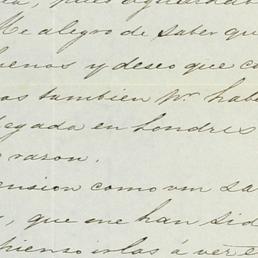 Me alegro de saber qu
buenos y deseo que co
as tambien Mr. habe
legada en Londres
razon.
ension como vm sa
, que me han sid
pienso irlas á ver e